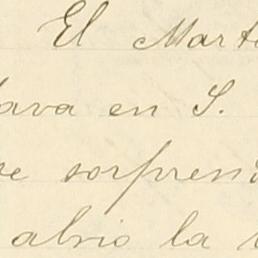 El Mart
lava en S.
se sorpren
abrio la